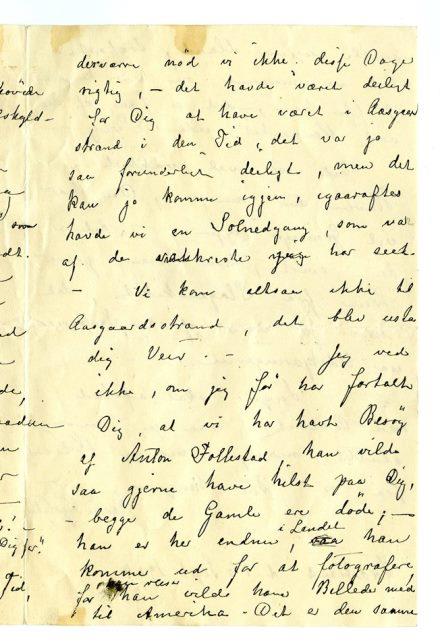 desværre nöd vi ikke disse Dage
rigtig, – det havde været deiligt
for Dig at have været i Aasgaard
strand i den Tid, det var jo
saa forunderligt deiligt, men det
kan jo komme igjen, igaaraftes
havde vi en Solnedgang, som var
af de vakkreste jeg har seet.
– Vi kom altsaa ikke til
Aasgaardsstrand, det blev ustadig
Veir. – Jeg ved
ikke, om jeg för har fortalt
Dig, at vi har havt Besög
af Anton Follestad, han vilde
saa gjerne have hilst paa Dig,
– begge de Gamle ere döde; –
han er her endnu i Landet, han
komme ud for at fotografere,
för han reise
han vilde have Billede med
til Amerika – Det er den samme